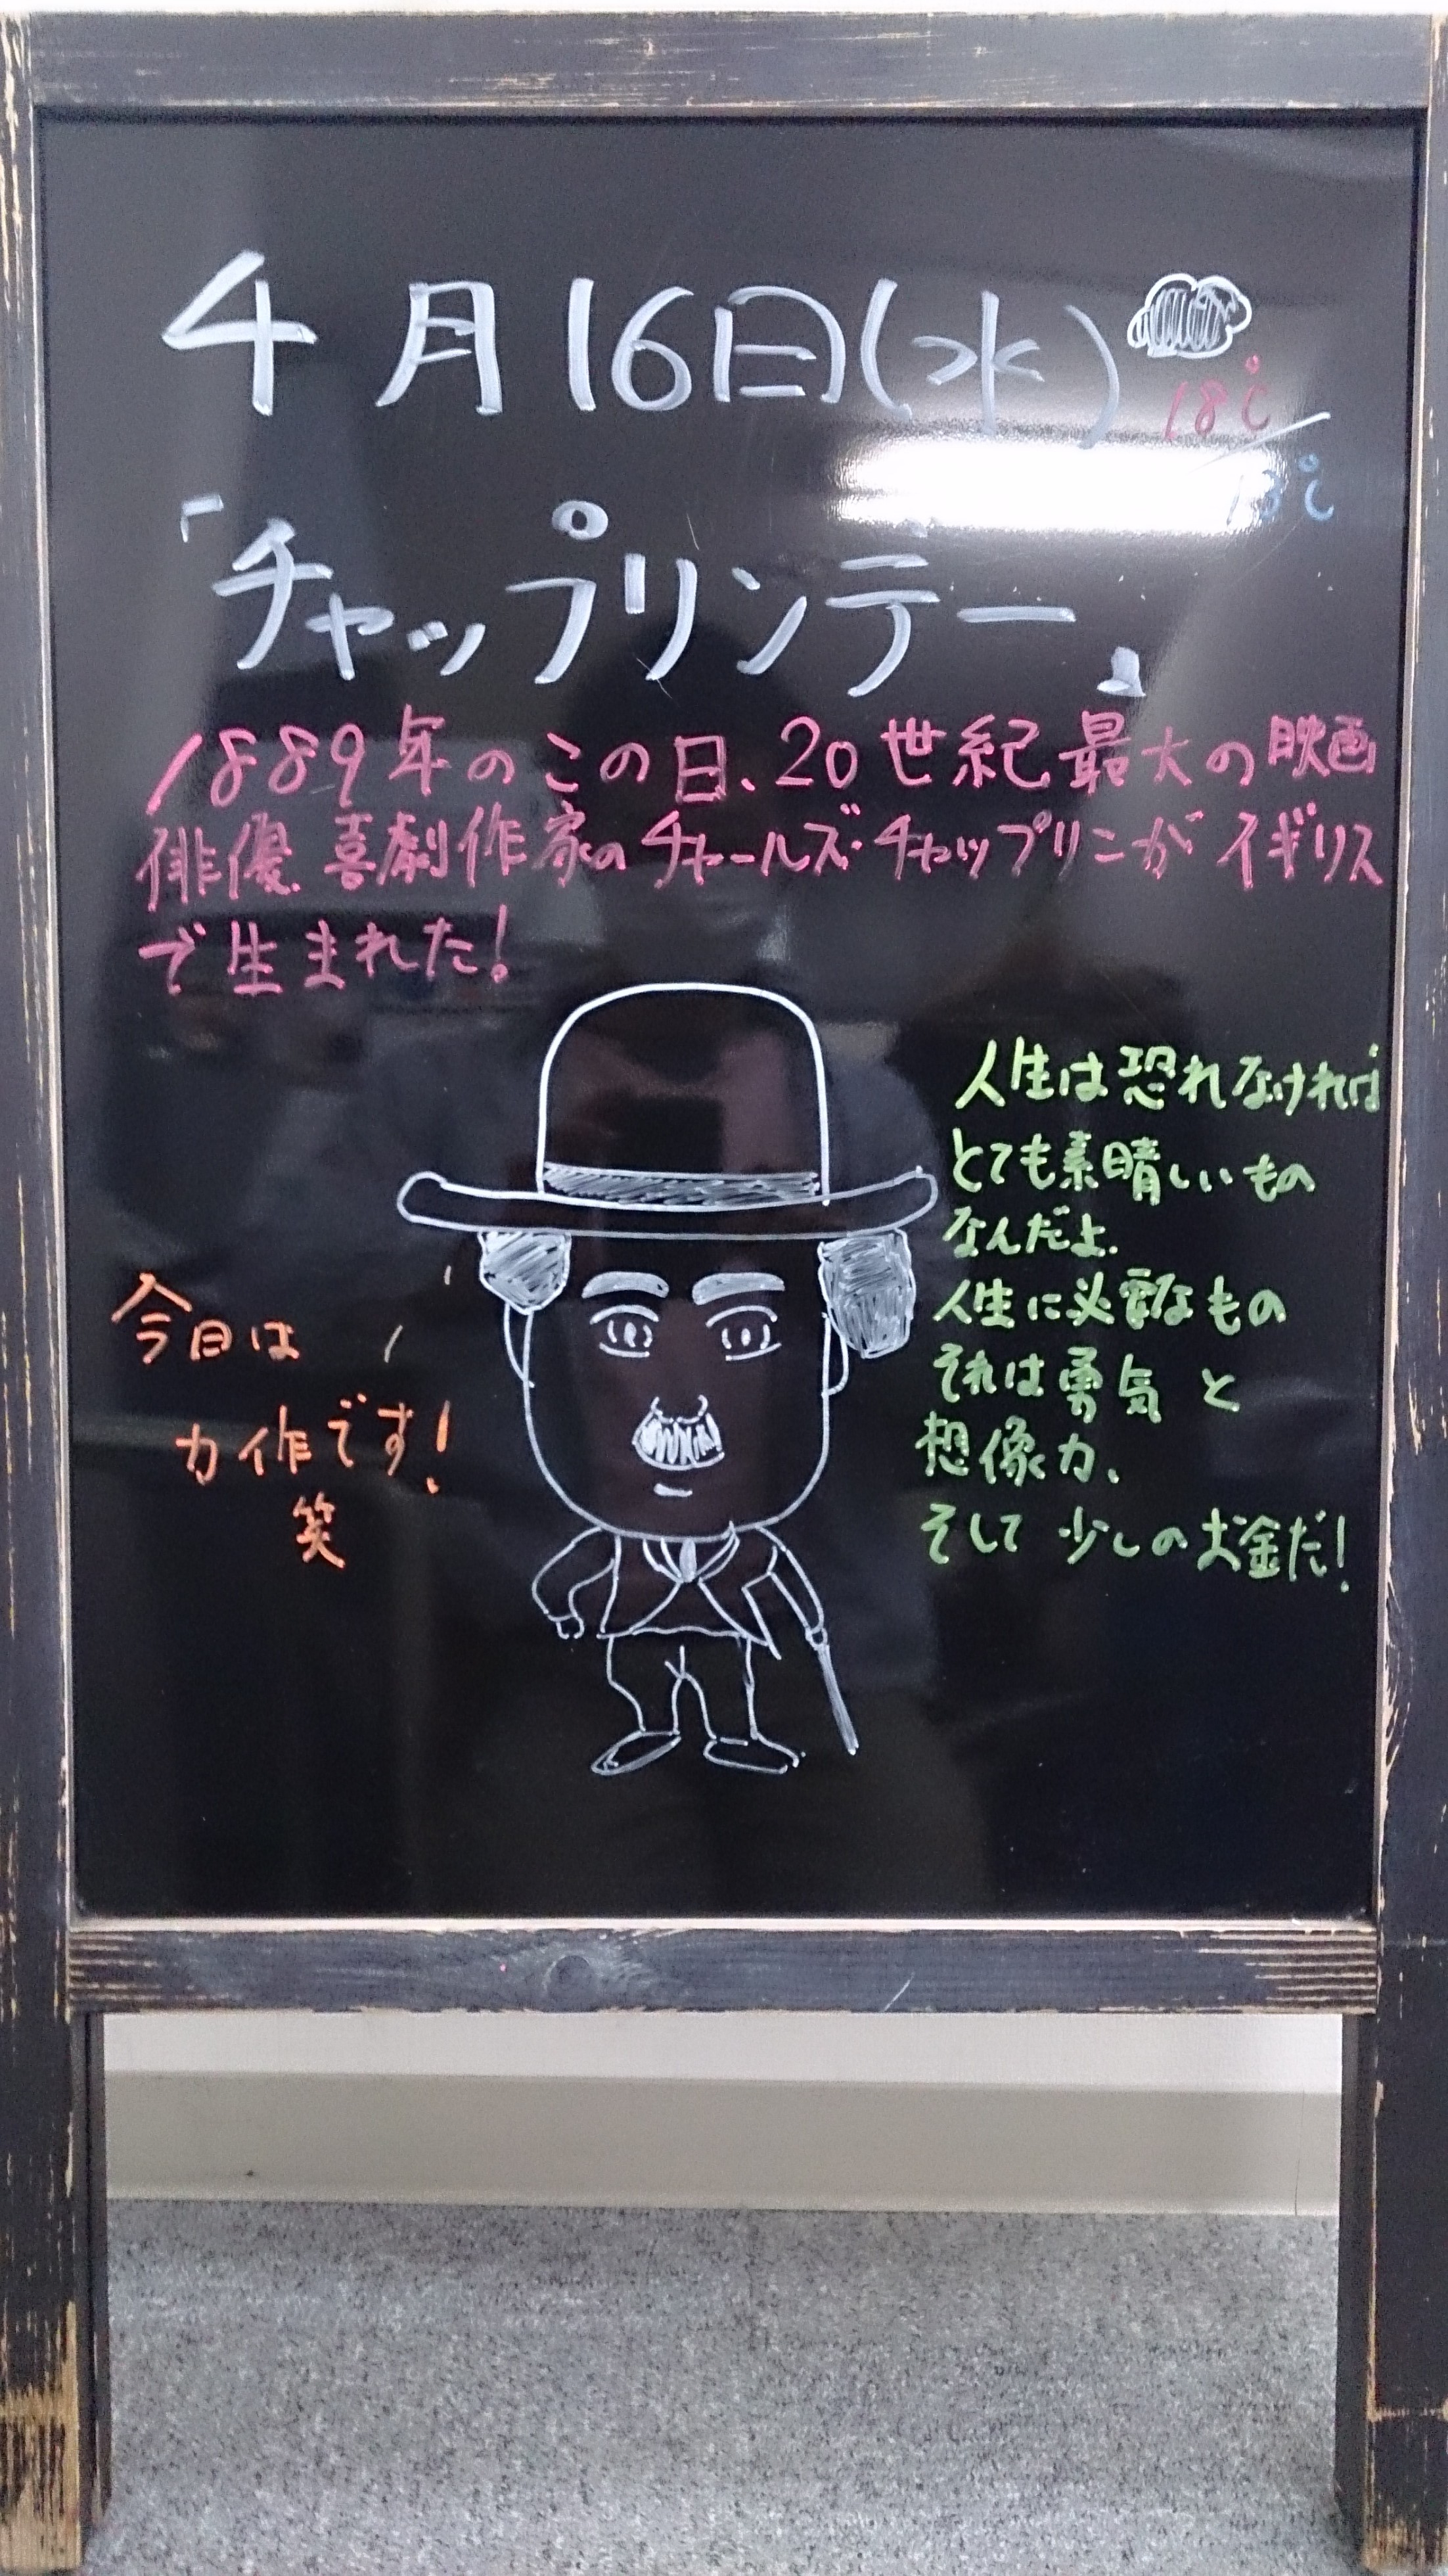 4月16日(水)
18℃
13℃
「チャップリンデー」
1889年のこの日、20世紀最大の映画
俳優、喜劇作家のチャールズ・チャップリンがイギリス
で生まれた!
人生は恐れなければ
とても素晴しいもの
なんだよ.
人生に必要なもの
それは勇気と
想像力、
そして少しのお金だ!
今日は
力作です!
笑